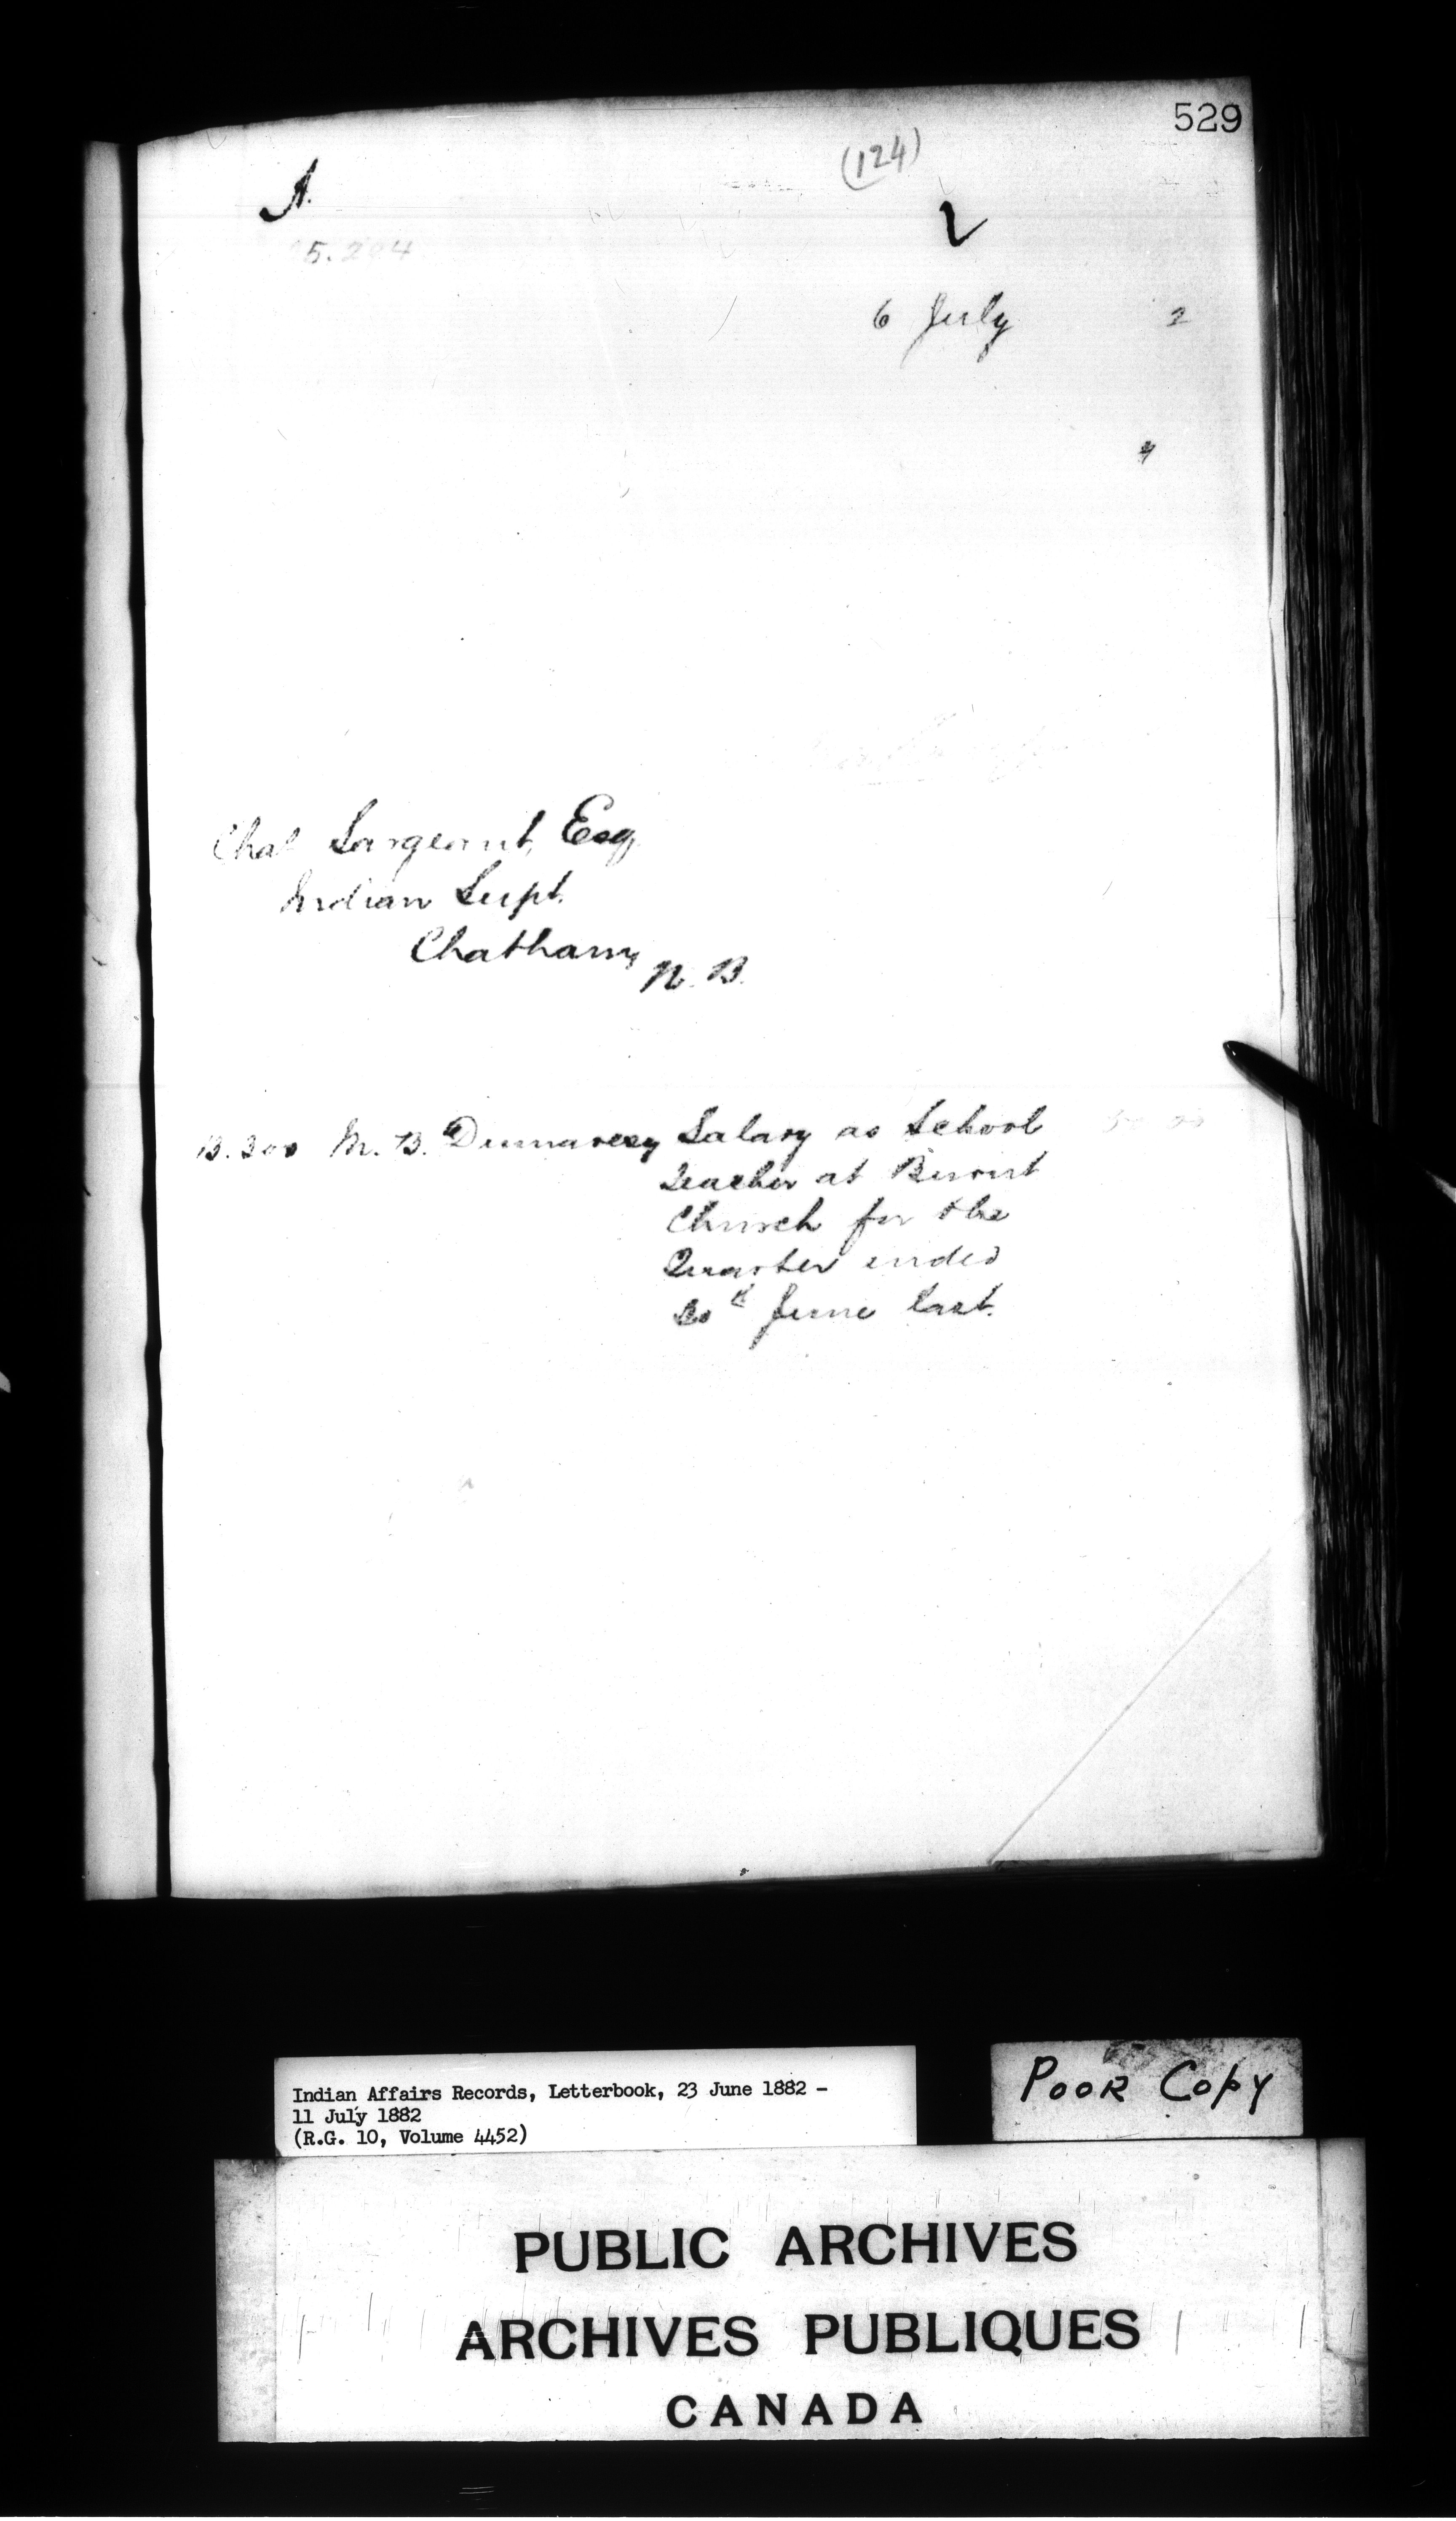 529
(124)
A.
6 July 2
Chas Sargeant, Esq
Indian Supt.
Chatham, N. B.
B. 300 M. B. Salary as School 50 00
Teacher at Burnt
Church for the
Quarter ended
30th June last.
Indian Affairs Records, Letterbook, 23 June 1882 -
11 July 1882
(R.G. 10, Volume 4452)
POOR COPY
PUBLIC ARCHIVES
ARCHIVES PUBLIQUES
CANADA